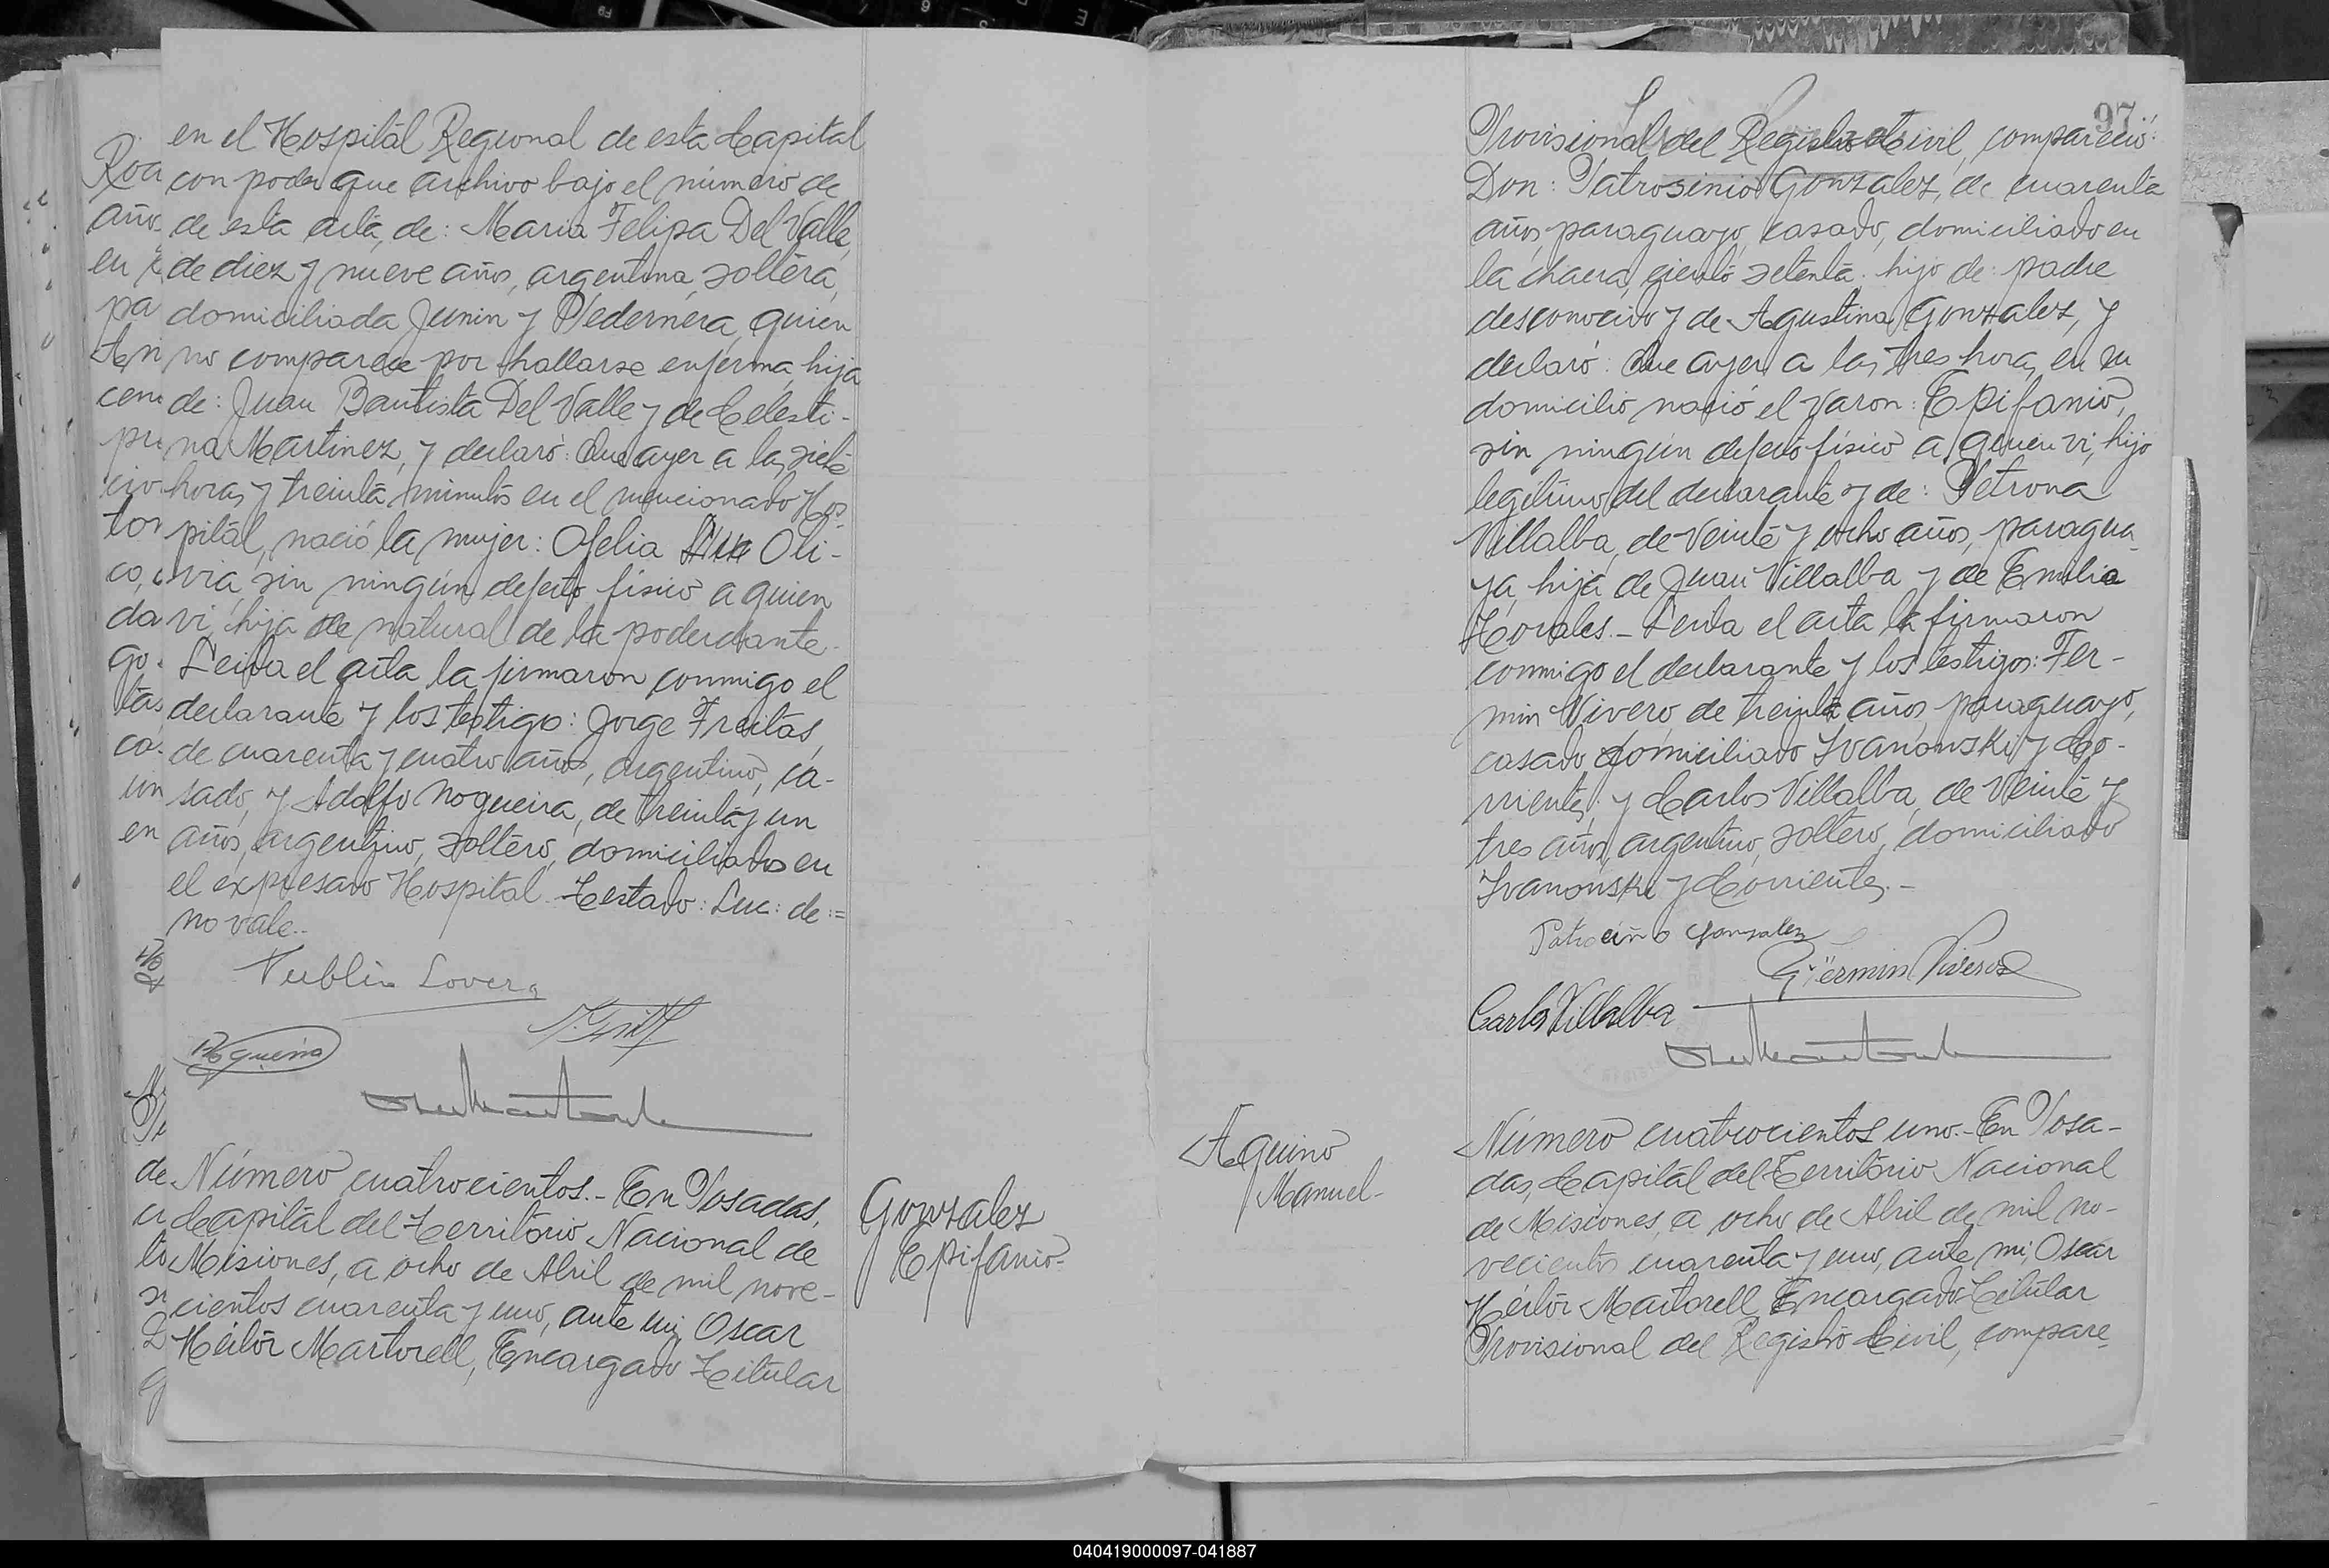 en el Hospital Regional de esta Capital
con poder que archivo bajo el número de
de esta acta, de: Maria Felipa Del Valle,
de diez y nueve años, argentina, soltera,
domiciliada Junin y Pedernera, quien
no comparece por hallarse enferma, hija
de: Juan Bautista Del Valle y de Celesti-
na Martinez, y declaró: Que ayer a las siete
horas y treinta minutos en el mencionado Hos-
pital, nació la mujer: Ofelia Oli-
via, sin ningún defecto físico a quien
vi, hija de natural de la poderdante.
Leida el acta la firmaron conmigo el
declarante y los testigos: Jorge Freitas,
de cuarenta y cuatro años, argentino, ca-
sado, y Adolfo Nogueira, de treinta y un
años, argentino, soltero, domiciliados en
el expresado Hospital. Testado: Luc: de:=
no vale..
Lovera
Nogueira
Número cuatrocientos.- En Posadas,
Capital del Territorio Nacional de
Misiones, a ocho de Abril de mil nove-
cientos cuarenta y uno, ante mi, Oscar
Héctor Martorell, Encargado Titular
Gonzalez
Epifanio-
97
Provisional del Registro Civil, compareció:
Don: Patrosinio Gonzalez, de cuarenta
años, paraguayo, casado, domiciliado en
la chacra, ciento setenta. hijo de: padre
desconocido y de Agustina Gonzalez, y
declaró: Que ayer a las tres horas, en su
domicilio nació el varon: Epifanio,
sin ningún defecto físico a quien vi, hijo
legítimo del declarante y de: Petrona
Villalba, de veinte y ocho años, paragua-
ya, hija de Juan Villalba y de Emilia
Leida el acta la firmaron
conmigo el declarante y los testigos: Fer-
min Vivero, de treinta años, paraguayo,
casado domiciliado Ivanowski y Co-
rrientes; y Carlos Villalba, de veinte y
tres años, argentino, soltero, domiciliado
Ivanowski y Corrientes.-
Patrocinio Gonzalez
Fermin Viveros
Carlos Villalba
Aquino
Manuel-
Número cuatrocientos uno.- En Posa-
das, Capital del Territorio Nacional
de Misiones, a ocho de Abril de mil no-
vecientos cuarenta y uno, ante mi, Oscar
Héctor Martorell, Encargado Titular
Provisional del Registro Civil, compare-
040419000097-041887